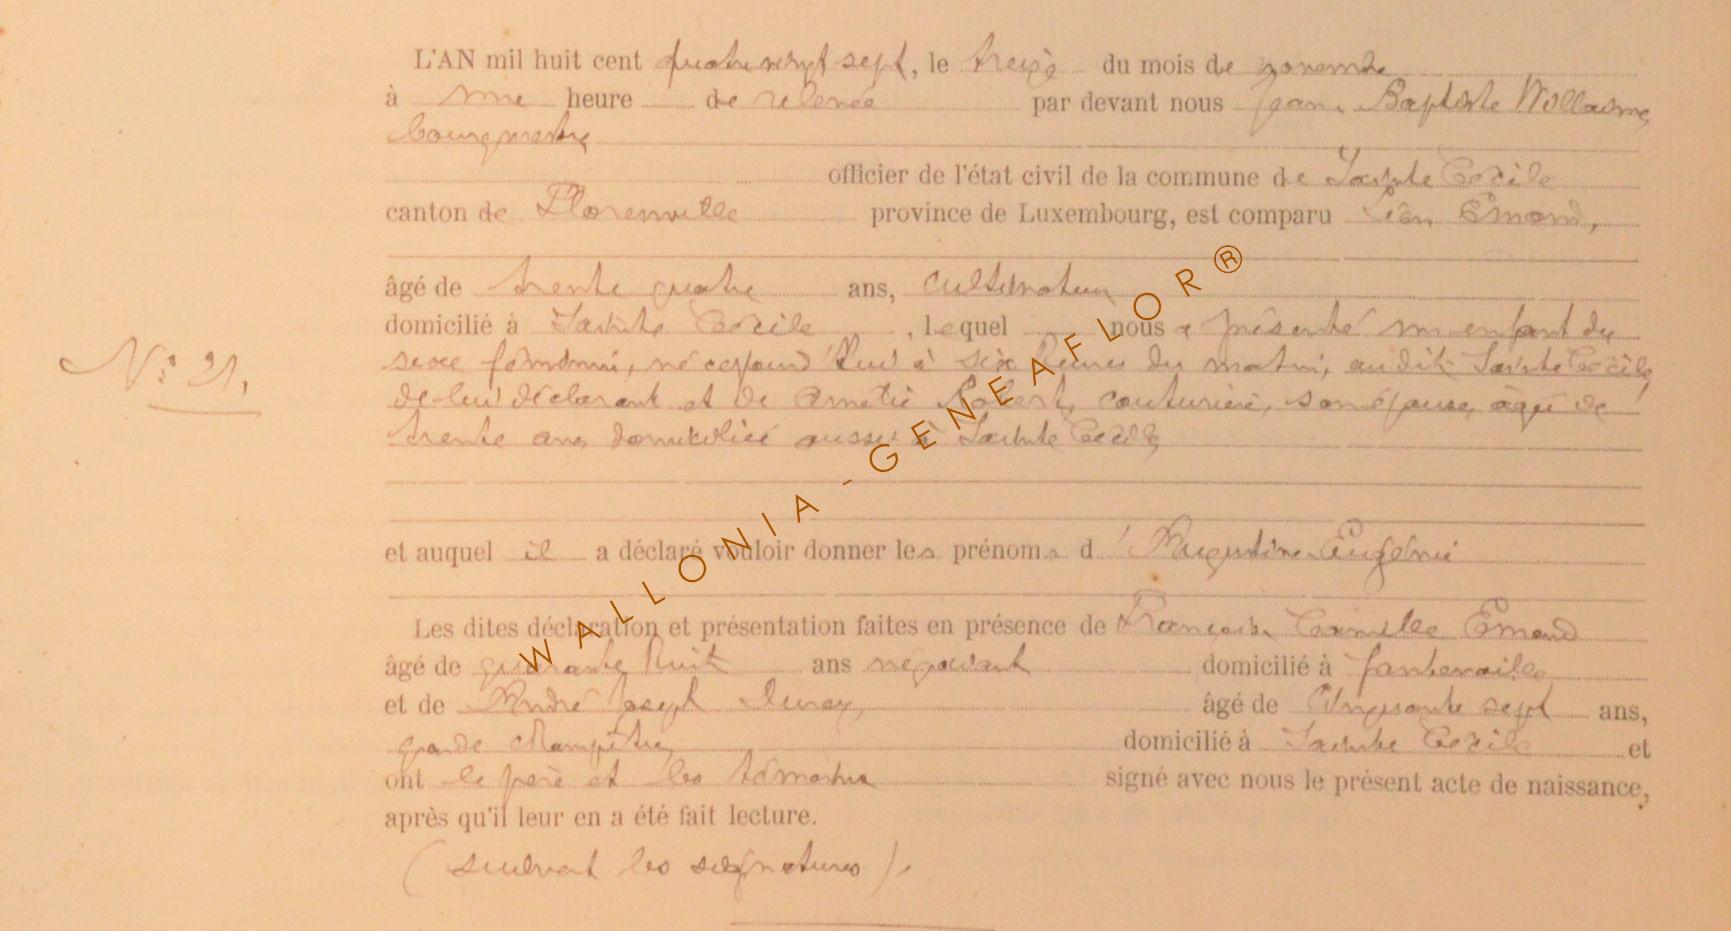 L'AN mil huit cent quatrevingt sept, le treize du mois de novembre
à une heure de relevée par devant nous Jean Baptiste Willaime,
bourgmestre
officier de l'état civil de la commune de Sainte Cécile
canton de Florenville province de Luxembourg, est comparu Léon Emond,
âgé de trente quatre ans, cultivateur
domicilié à Sainte Cécile, lequel nous a présenté un enfant du
N° 21.
sexe féminin, né cejourd'hui à six heures du matin, audit Sainte Cécile,
de lui déclarant et de Robert, couturière, son épouse, âgée de
trente ans, domiciliée aussi à Sainte Cécile,
et auquel il a déclaré vouloir donner les prénoms d'Augustine Eugénie
Les dites déclaration et présentation faites en présence de François Camille Emond
âgé de quarante huit ans négociant domicilié à fontenoille
et de André Joseph âgé de cinquante sept ans,
garde champêtre, domicilié à Sainte Cécile et
ont le père et les témoins signé avec nous le présent acte de naissance,
après qu'il leur en a été fait lecture.
(suivent les signatures).
WALLONIA - GENEAFLOR®